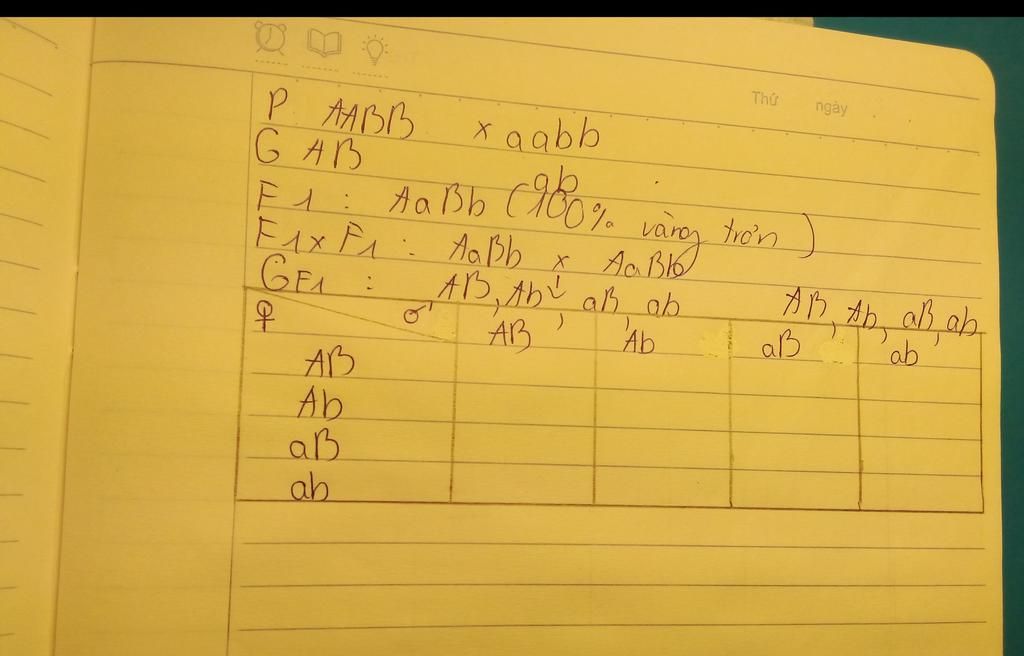 Thứ ngày
P AABB x aabb
G AB ab
F1 : AaBb (100% vàng trơn)
F1 x F1 : AaBb x AaBb
GF1 : AB, Ab, aB, ab AB, Ab, aB, ab
♀ ♂ AB Ab aB ab
AB
Ab
aB
ab